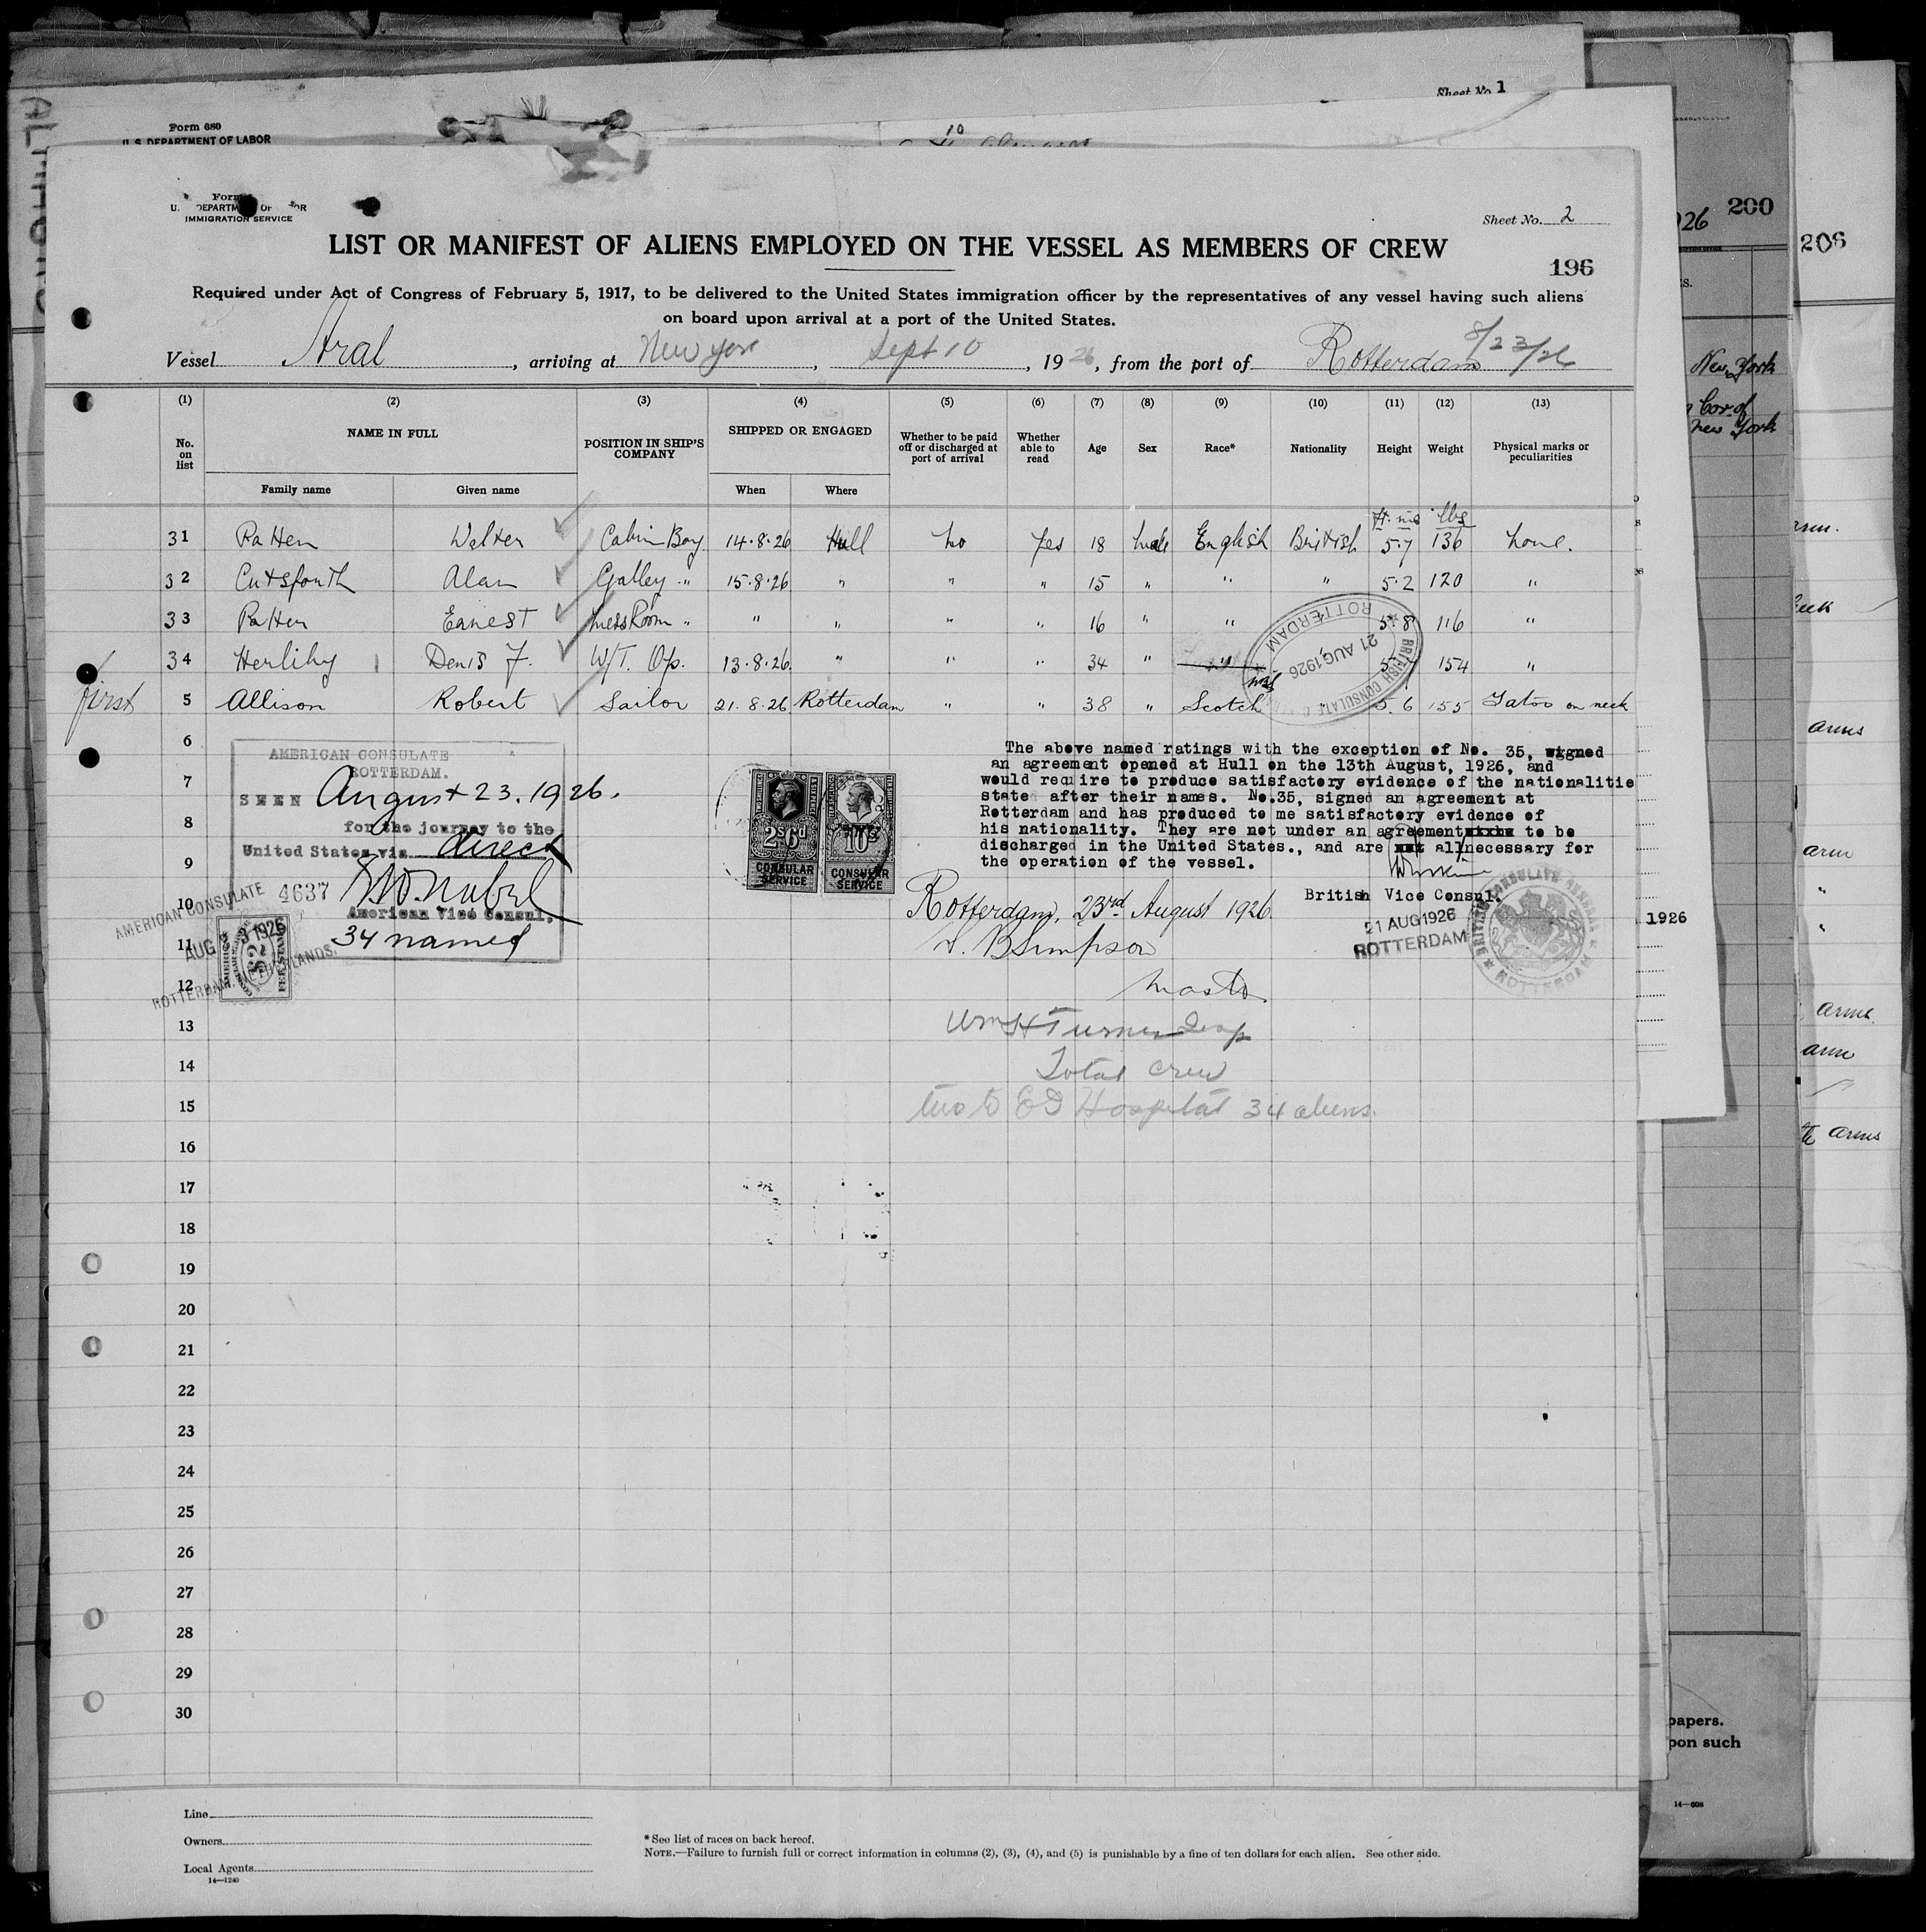 Sheet No. 1
Form 680
U. S. DEPARTMENT OF LABOR
10
Form
U. DEPARTM OF OR
IMMIGRATION SERVICE
Sheet No. 2
LIST OR MANIFEST OF ALIENS EMPLOYED ON THE VESSEL AS MEMBERS OF CREW
196
Required under Act of Congress of February 5, 1917, to be delivered to the United States immigration officer by the representatives of any vessel having such aliens
on board upon arrival at a port of the United States.
8/23/26
Vessel Aral, arriving at New York, Sept 10, 1926, from the port of Rotterdam
(1) (2) (3) (4) (5) (6) (7) (8) (9) (10) (11) (12) (13)
No. on list NAME IN FULL POSITION IN SHIP'S COMPANY SHIPPED OR ENGAGED Whether to be paid off or discharged at port of arrival Whether able to read Age Sex Race* Nationality Height Weight Physical marks or peculiarities
Family name Given name When Where
ft. ins lbs
31 Patten Walter Cabin Boy 14.8.26 Hull No Yes 18 Male English British 5.7 136 None.
32 Cutsforth Alan Galley " 15.8.26 " " " 15 " " " 5.2 120 "
33 Patten Earnest Mess Room " " " " " 16 " " 5.8 116 "
34 Herlihy Denis F. W/T. Op. 13.8.26 " " " 34 " " 154 "
first 5 Allison Robert Sailor 21.8.26 Rotterdam " " 38 " Scotch 5.6 155 Tatoo on neck
BRITISH CONSULATE
21 AUG 1926
ROTTERDAM
6
7
8
9
10
11
12
13
14
15
16
17
18
19
20
21
22
23
24
25
26
27
28
29
30
AMERICAN CONSULATE
ROTTERDAM.
SEEN August 23. 1926.
for the journey to the
United States via direct
4637
American Vice Consul,
34 named
AMERICAN CONSULATE
AUG 23 1926
ROTTERDAM, NETHERLANDS.
AMERICAN
$2
FEE STAMP
2s6d
CONSULAR
SERVICE
10s
CONSULAR
SERVICE
The above named ratings with the exception of No. 35, signed
an agreement opened at Hull on the 13th August, 1926, and
would require to produce satisfactory evidence of the nationalitie
state after their names. No.35, signed an agreement at
Rotterdam and has produced to me satisfactory evidence of
his nationality. They are not under an agreement to be
discharged in the United States., and are all necessary for
the operation of the vessel.
British Vice Consul.
21 AUG 1926
ROTTERDAM
BRITISH CONSULATE GENERAL
ROTTERDAM
Rotterdam, 23rd August 1926.
Simpson
Master
Wm H Turner Insp
Total crew
Two to E I Hospital 34 aliens.
Line
Owners
Local Agents
14—1240
* See list of races on back hereof.
NOTE.—Failure to furnish full or correct information in columns (2), (3), (4), and (5) is punishable by a fine of ten dollars for each alien. See other side.
26 200
206
New York
Cor. of
New York
arm.
arms
arm
"
"
1926
arms.
arm
arms
papers.
pon such
14—608